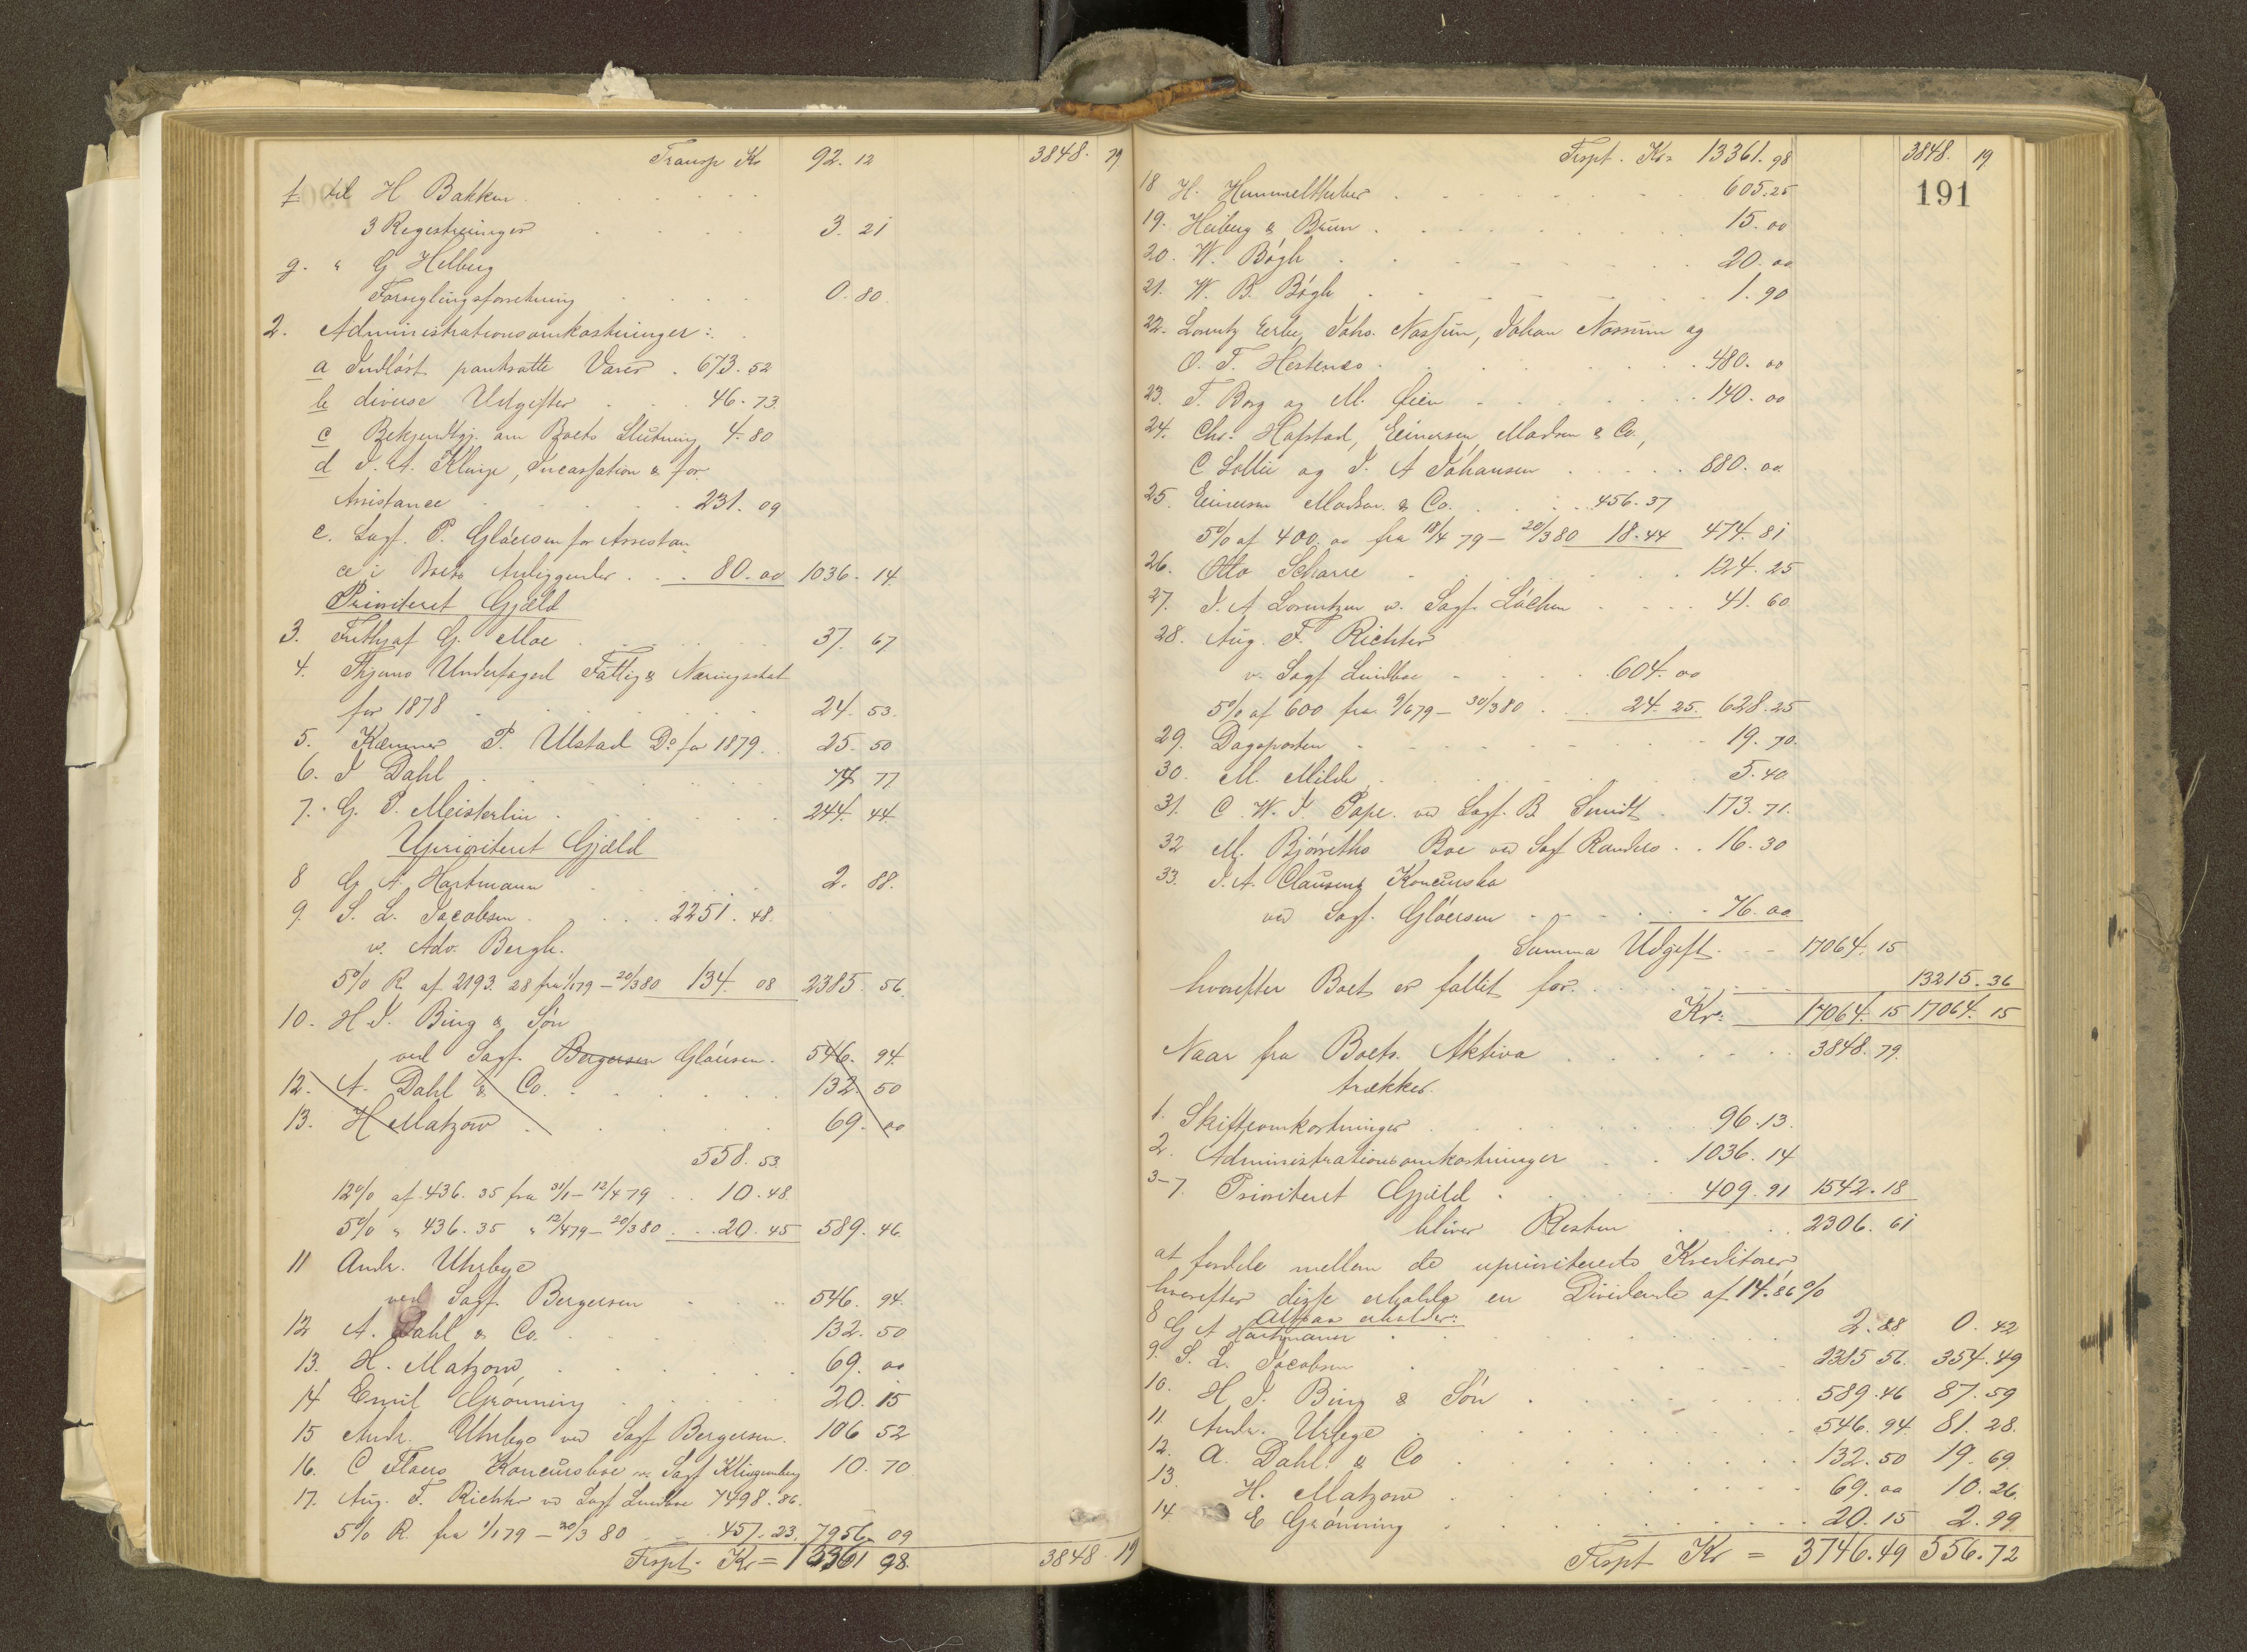 Transp Kr 92. 12 3848. 79
f til H Bakken
3 Registreringer 3. 21
g. " G Helberg
Forseglingsforretning 0. 80.
2. Administrationsomkostninger:
a Indløst pantsatte Varer . 673. 52
b diverse Udgifter 46. 73.
c Bekjendtgj. om Boets Slutning 4. 80
d J. A. Klinge, Incassation & for
Assistance 231. 09
e. Sagf. P. Gløersen for Assistan
ce i Boets Anliggender 80. 00 1036. 14.
Prioriteret Gjæld
3. Frithjof G. Moe 37. 67
4. Undertoged Fattig & Næringsskat
for 1878 24. 53.
5. Kæmner P. Ulstad Do for 1879. 25. 50
6. J Dahl 77
7. G. P. Meisterlin 244. 44.
Uprioriteret Gjæld
8 G. A. Hartmann 2. 88.
9. S. L. Jacobsen 2251. 48.
v. Adv. Bergh.
5% R. af 2193. 28 fra 1/1 79 – 20/3 80 134. 08 2385. 56.
10. H. J. Bing & Søn
ved Sagf. Bergersen Gløersen. 546. 94.
12. A. Dahl & Co. 132. 50
13. H Matzow 69. 00
558. 53.
12% af 436. 35 fra 31/1 – 12/4 79 10. 48.
5% " 436. 35 " 12/4 79 – 20/3 80 20. 45 589. 46.
11 Andr. Uhrbye
ved Sagf. Bergersen 546. 94.
12 A. Dahl & Co. 132. 50
13. H. Matzow 69. 00
14 Emil Grønning 20. 15
15 Andr. Uhrbye ved Sagf Bergersen. 106 52
16. C Floers Koncursboe v. Sagf Klingenberg 10. 70
17. Aug. F. Richter vd Sagf Lindboe 7498. 86.
5% R. fra 1/1 79 – 20/3 80 457. 23. 7956. 09
Trspt. Kr = 13361 98. 3848. 79
Trspt. Kr. 13361. 98 3848. 79
191
18 H. Hummeltheber 605. 25
19. Heiberg & Brun 15. 00
20. W. Bøgh 20. 00
21. W. B. Bøgh 1. 90
22. Lorentz Johs. Nossum, Johan Nossum og
O. T. Hestenes 480. 00
23. T. Borg og M. Øien 140. 00
24. Chr. Hafstad, Einersen, Madsen & Co.,
C Lollie og J. A Johansen 880. 00.
25. Einersen Madsen & Co. 456. 37
5% af 400. 00 fra 18/4 79 – 20/3 80 18. 44 474. 81
26. Otto Scharre 124. 25
27. J. A Lorentzen v. Sagf. Løchen 41. 60
28. Aug. F. Richter
v. Sagf Lindboe 604. 00
5% af 600 fra 9/6 79 – 30/3 80 24. 25. 628. 25
29. Dagsposten 19. 70.
30. M. Milde 5. 40
31. C. W. J. Pape. ved Sagf. B Smidt 173. 71.
32 M. Boe ved Sagf Randers 16. 30
33. J. A. Clausens Koncursbo
ved Sagf. Gløersen 76. 00
Summa Udgift 17064. 15
hvorefter Boet er fallit for 13215. 36
Kr: 17064. 15 17064. 15
Naar fra Boets Aktiva 3848. 79.
trækkes.
1. Skifteomkostninger 96. 13.
2. Administrationsomkostninger 1036. 14
3–7. Prioriteret Gjæld 409. 91 1542. 18
bliver Resten 2306. 61
at fordele mellem de uprioriterede Kreditorer,
hvorefter disse erholde en Dividende af 14.86%
Altsaa erholder:
8 G A Hartmann 2. 88 0. 42
9. S. L. Jacobsen 2385 56. 354. 49
10. H J. Bing & Søn 589. 46 87. 59
11. Andr. Urbye 546. 94. 81. 28.
12. A. Dahl & Co 132. 50 19. 69.
13. H. Matzow 69. 00 10. 26.
14 E Grønning 20. 15 2. 99.
Trspt Kr = 3746. 49 556. 72